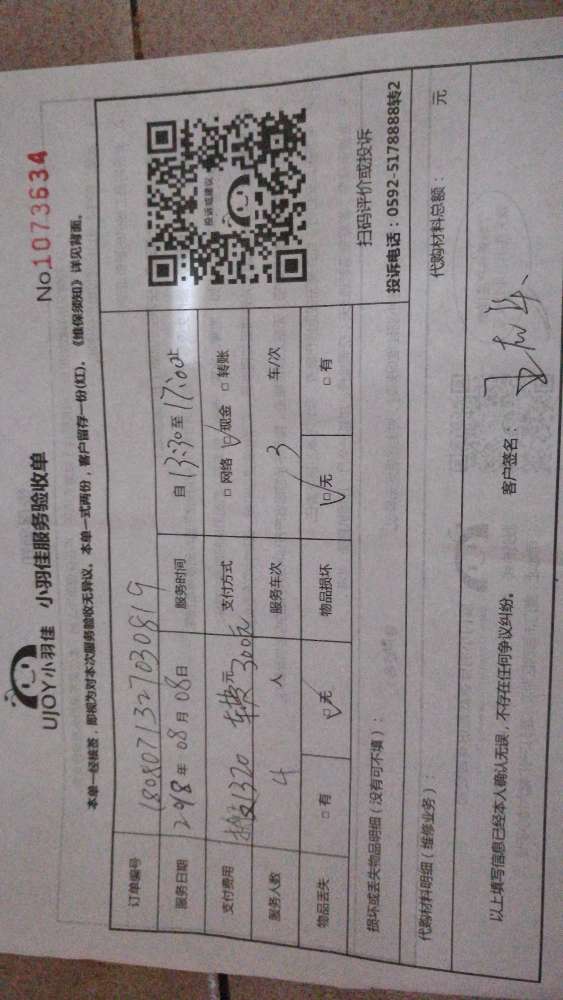 UJOY小羽佳 小羽佳服务验收单
No.1073634
本单一经核签，即视为对本次服务验收无异议，本单一式两份，客户留存一份(红)。《维保须知》详见背面。
订单编号 1808071327030819
服务日期 2018 年 08 月 08 日 服务时间 自 13:30 至 17:00止
支付费用 搬运1320 元 车费300元 支付方式 □ 网络 ☑现金 □ 转账
服务人数 4 人 服务车次 3 车/次
物品丢失 □ 有 ☑无 物品损坏 ☑无 □ 有
投诉或建议
扫码评价或投诉
投诉电话：0592-5178888转2
损坏或丢失物品明细（没有可不填）：
代购材料明细（维修业务）： 代购材料总额： 元
以上填写信息已经本人确认无误，不存在任何争议纠纷。 客户签名：